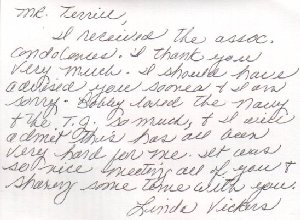 Mr. Terrill,
I received the assoc.
condolences. I thank you
very much. I should have
advised you sooner & I am
sorry. Bobby loved the Navy
& the T.G. so much, & I will
admit this has all been
very hard for me. It was
so nice meeting all of you &
sharing some time with you.
Linda Vickers